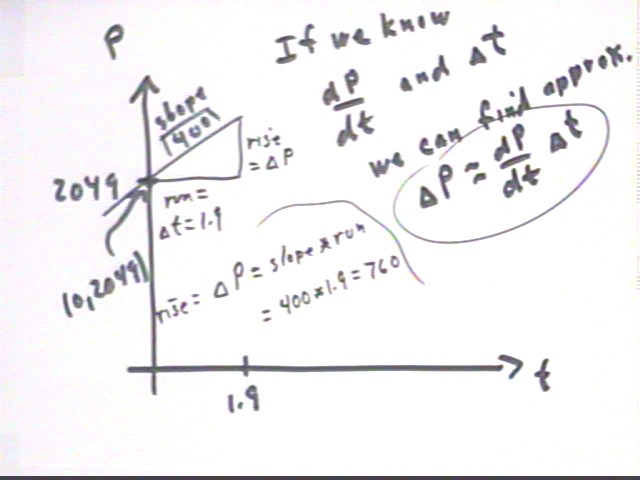 P
If we know
dP/dt and Δt
we can find approx.
ΔP ≈ dP/dt Δt
slope
400
rise
= ΔP
2049
run =
Δt = 1.9
(0, 2049)
rise = ΔP = slope * run
= 400 * 1.9 = 760
t
1.9